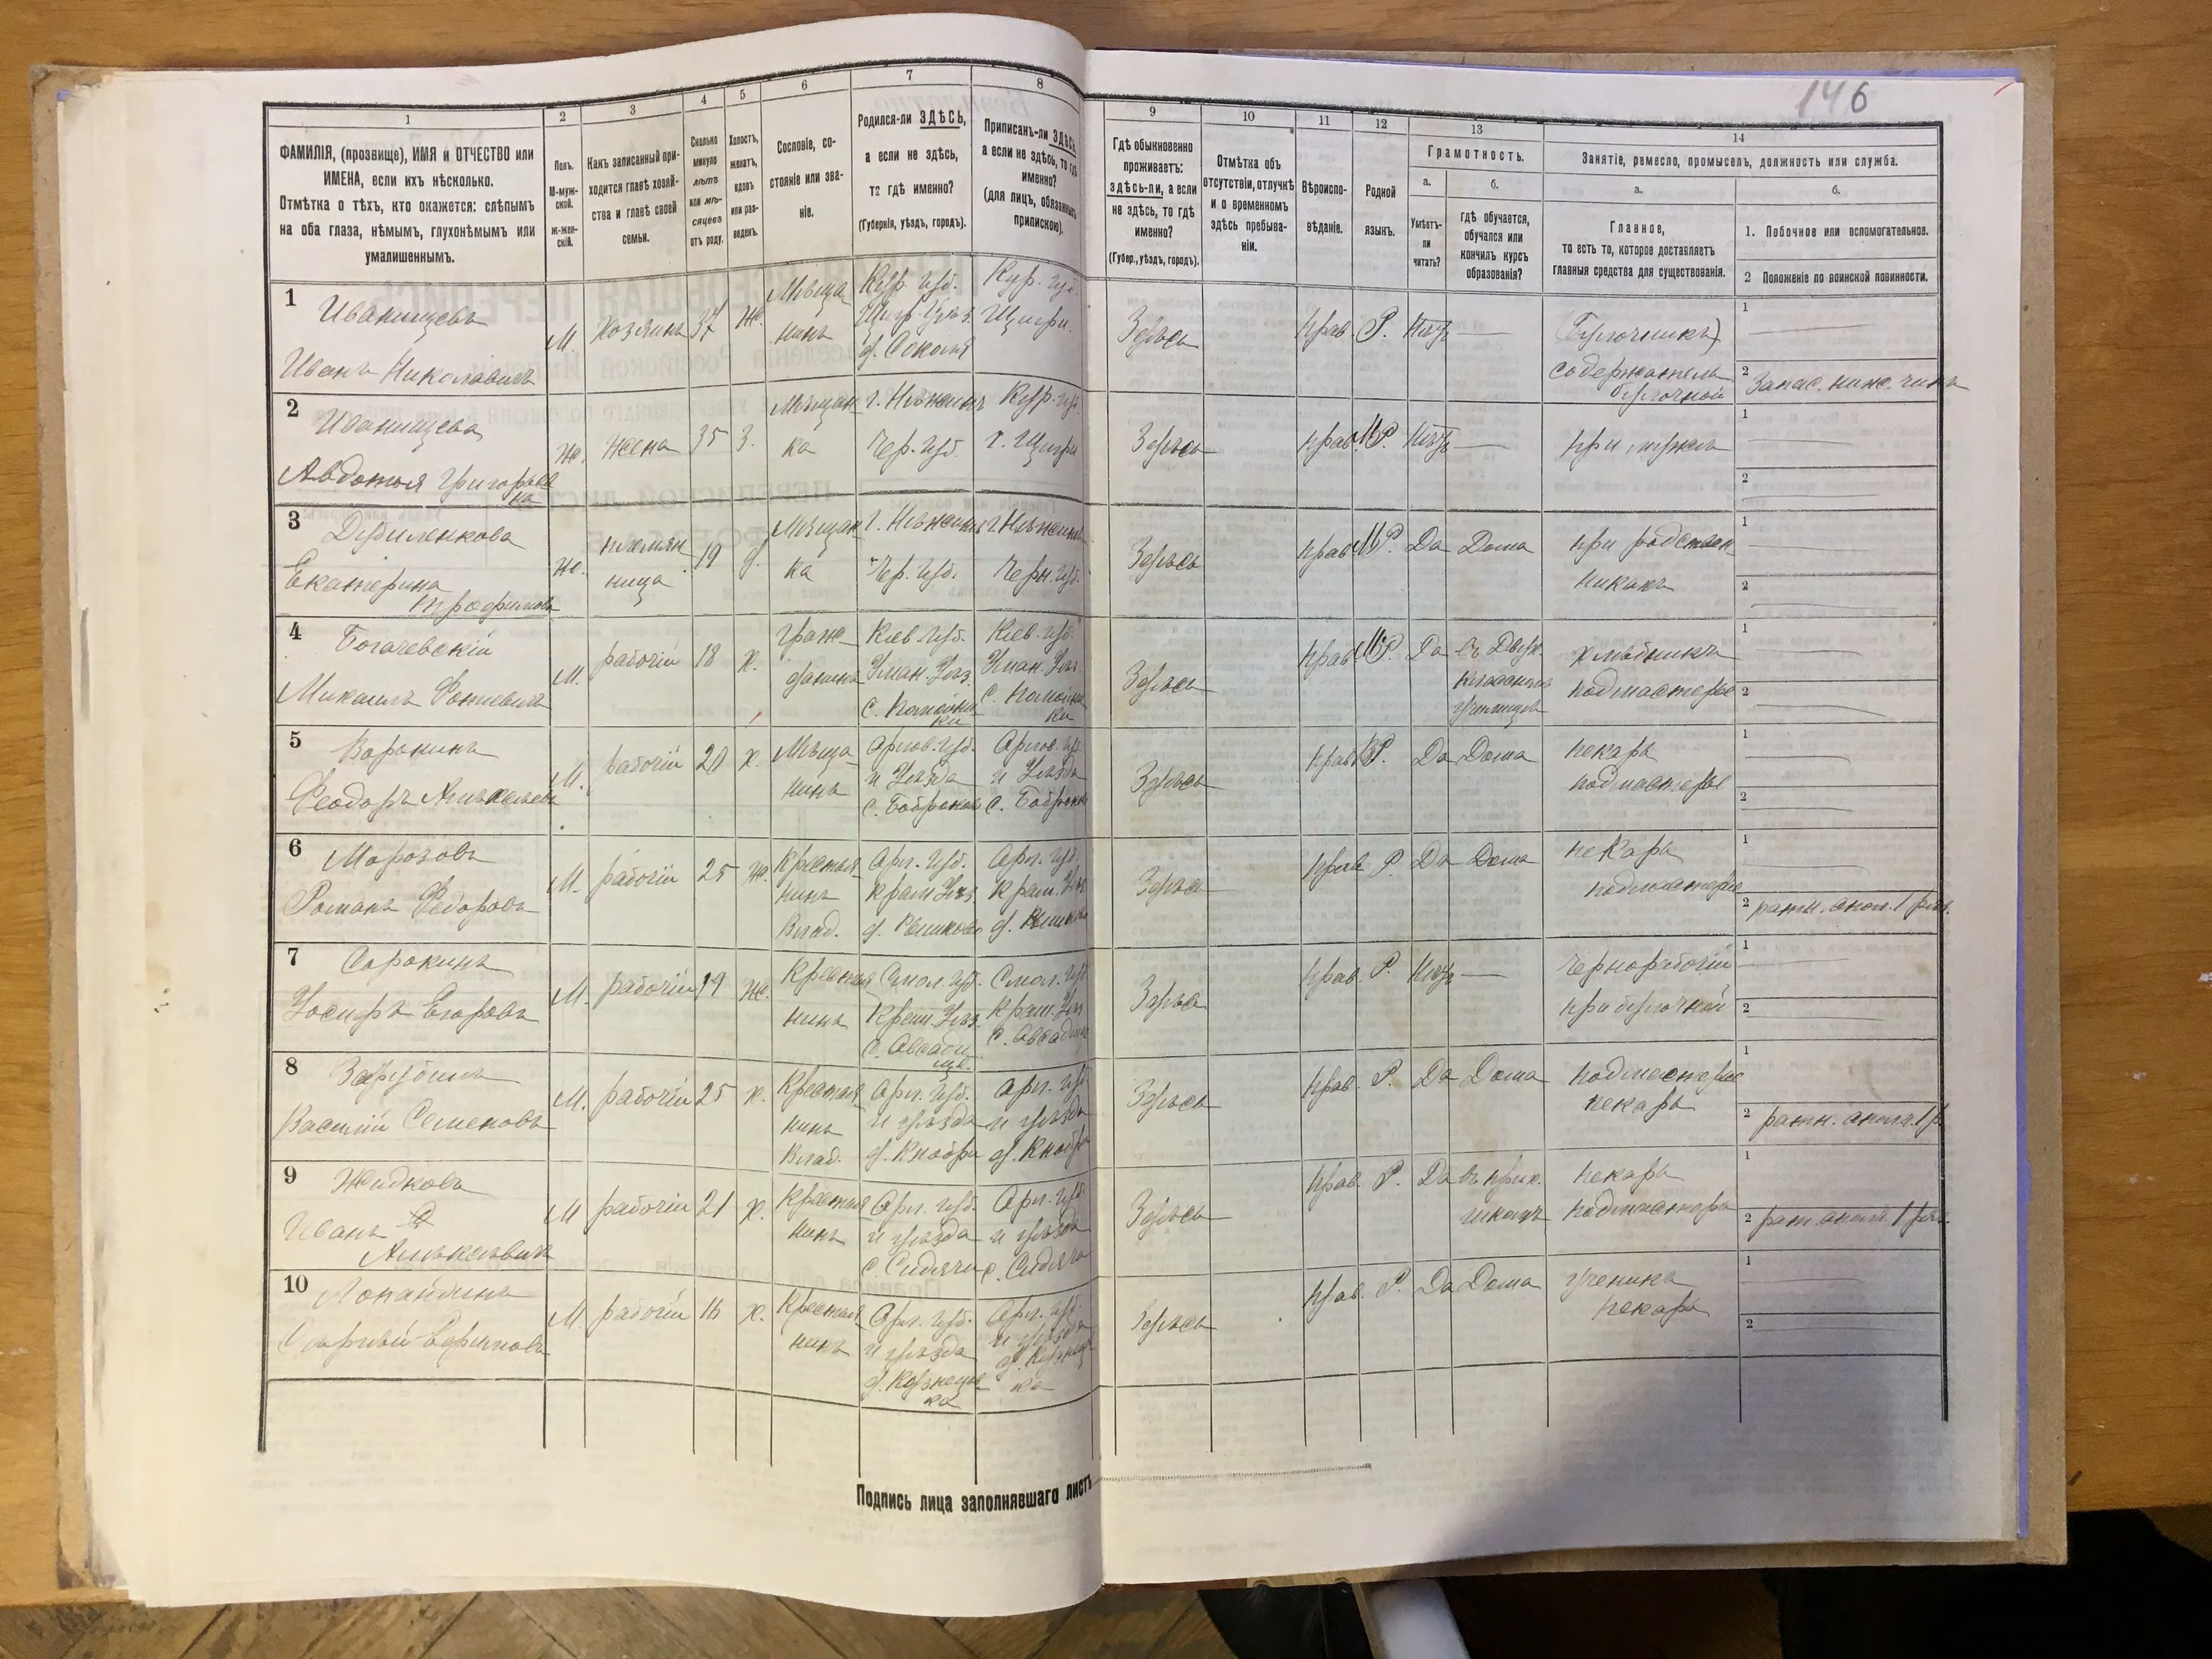 146
1
2
3
4
5
6
7
8
9
10
11
12
13
14
ФАМИЛІЯ, (прозвище), ИМЯ и ОТЧЕСТВО или
ИМЕНА, если ихъ нѣсколько.
Отмѣтка о тѣхъ, кто окажется: слѣпымъ
на оба глаза, нѣмымъ, глухонѣмымъ или
умалишеннымъ.
Полъ.
М-муж-
ской.
ж-жен-
скій.
Какъ записанный при-
ходится главѣ хозяй-
ства и главѣ своей
семьи.
Сколько
минуло
лѣтъ
или мѣ-
сяцевъ
отъ роду.
Холостъ,
женатъ,
вдовъ
или раз-
веденъ.
Сословіе, со-
стояніе или зва-
ніе.
Родился-ли ЗДѢСЬ,
а если не здѣсь,
то гдѣ именно?
(Губернія, уѣздъ, городъ).
Приписанъ-ли ЗДѢСЬ
а если не здѣсь, то гдѣ
именно?
(для лицъ, обязанныхъ
припискою).
Гдѣ обыкновенно
проживаетъ:
здѣсь-ли, а если
не здѣсь, то гдѣ
именно?
(Губер., уѣздъ, городъ).
Отмѣтка объ
отсутствіи, отлучкѣ
и о временномъ
здѣсь пребыва-
ніи.
Вѣроиспо-
вѣданіе.
Родной
языкъ.
Грамотность.
а.
Умѣетъ-
ли
читать?
б.
гдѣ обучается,
обучался или
кончилъ курсъ
образованія?
Занятіе, ремесло, промыселъ, должность или служба.
а.
Главное,
то есть то, которое доставляетъ
главныя средства для существованія.
б.
1. Побочное или вспомогательное.
2 Положеніе по воинской повинности.
1
Иванищевъ
Иванъ Николаевичъ
М.
Хозяинъ
37
Ж.
Мѣща
нинъ
Кур. губ.
Щигр. Уѣз.
Кур. губ.
Щигры.
Здѣсь
Прав.
Р.
Нѣтъ
(Булочникъ)
содержатель
булочной
1
2 Запас. ниж. чинъ
2
Иванищева
Авдотья Григорьев
на
Ж.
Жена
35
З.
Мѣщан
ка
г. Нѣжинъ
Чер. губ.
Кур. губ.
г. Щигры
Здѣсь
Прав.
М.Р.
Нѣтъ
при мужѣ
1
2
3
Екатерина
Трофимова
Ж.
племян
ница
19
д.
Мѣщан
ка
г. Нѣжинъ
Чер. губ.
г. Нѣжинъ
Черн. губ.
Здѣсь
Прав.
М.Р.
Да
Дома
при родствен
никахъ
1
2
4
Богачевскій
Михаилъ
М.
рабочій
18
х.
граж
данинъ
Кіев. губ.
Уман. Уѣз.
Кіев. губ.
Уман. Уѣз.
Здѣсь
Прав.
М.Р.
Да
въ Двух.
училищѣ
подмастерье
1
2
5
Воронинъ
Феодоръ Алексѣевъ
М.
рабочій
х.
Мѣща
нинъ
Орлов. губ.
и Уѣзда
Орлов. губ.
и Уѣзда
Здѣсь
Прав.
Р.
Да
Дома
пекарь
подмастерье
1
2
6
Морозовъ
Романъ Федоровъ
М.
рабочій
25
ж.
Крестья
нинъ
Влад.
Орл. губ.
Кром. Уѣз.
Орл. губ.
Кром. Уѣз.
Здѣсь
Прав.
Р.
Да
Дома
пекарь
подмастерье
1
2 ратн. опол. 1 раз.
7
Сорокинъ
Іосифъ Егоровъ
М.
рабочій
19
ж.
Крестья
нинъ
Смол. губ.
Смол. губ.
Здѣсь
Прав.
Р.
Нѣтъ
чернорабочій
при булочной
1
2
8
Зарубинъ
Василій Семеновъ
М.
рабочій
25
х.
Крестья
нинъ
Влад.
Орл. губ.
и уѣзда
д. Кнобрь
Орл. губ.
и уѣзда
д. Кнобрь
Здѣсь
Прав.
Р.
Да
Дома
подмастерье
пекарь
1
2 ратн. опол. 1 р.
9
Жидковъ
Иванъ
Алексѣевичъ
М
рабочій
21
х.
Крестья
нинъ
Орл. губ.
и уѣзда
Орл. губ.
и уѣзда
Здѣсь
Прав.
Р.
Да
школѣ
пекарь
подмастерье
1
2 рат. опол. 1 раз.
10
Лопандинъ
М.
рабочій
16
х.
Крестья
нинъ
Орл. губ.
и уѣзда
д. Кузнецов
ка
Орл. губ.
и уѣзда
Здѣсь
Прав.
Р.
Да
Дома
ученикъ
пекаря
1
2
Подпись лица заполнявшаго листъ